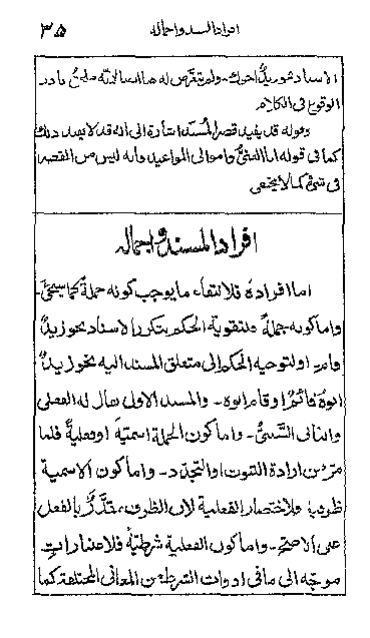 افراد المسند واجماله
٣٥
الاسناد نحو زيد اخوك - ولم يتعرض له هذا لانه نادر
الوقوع فى الكلام
وقوله قد يفيد قصر المسند اشارة الى انه قد لا يفيد ذلك
كما فى قوله اما التقى وامو الى المواعيد فانه ليس من القصر
فى شئ كما لا يخفى
افراد المسند واجماله
اما افراده فلانتفاء ما يوجب كونه جملة كما سيجئ -
واما كونه جملة فلتقوية الحكم بتكرر الاسناد نحو زيد
قام او لتوجيه المحكوم الى متعلق المسند اليه نحو زيد
ابوه قائم او قام ابوه - والمسند الاول يقال له الفعلى
والثانى السببى - واما كون الجملة اسمية او فعلية فلما
مر من ارادة الثبوت او التجدد - واما كون الاسمية
ظرفية فلاختصار الفعلية لان الظرف مقدر بالفعل
على الاصح - واما كون الفعلية شرطية فلاعتبارات
موجهة الى ما فى ادوات الشرط من المعانى المختلفة كما